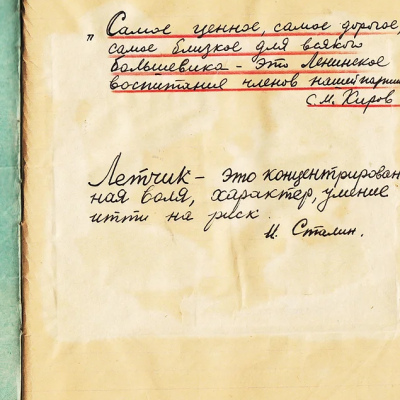 „ Самое ценное, самое дорогое,
самое близкое для всякого
большевика - это Ленинское
воспитание членов нашей партии
С. М. Киров
Летчик - это концентрирован
ная воля, характер, умение
итти на риск.
И. Сталин.